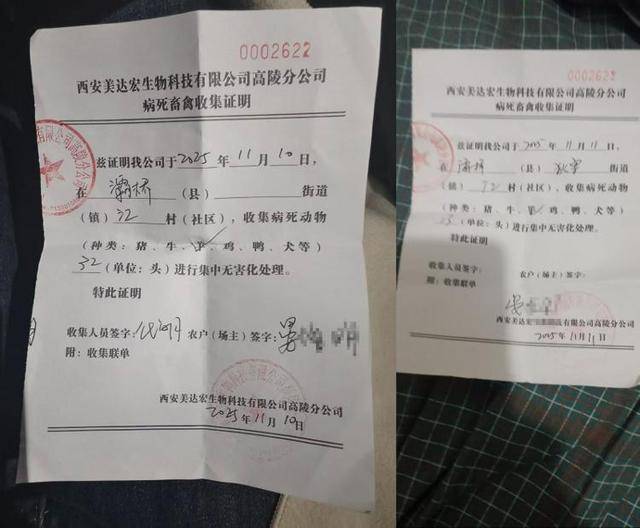 0002622
西安美达宏生物科技有限公司高陵分公司
病死畜禽收集证明
兹证明我公司于2025年11月10日，
在灞桥（县）街道
（镇）江村（社区），收集病死动物
（种类：猪、牛、羊、鸡、鸭、犬等）
32（单位：头）进行集中无害化处理。
特此证明
收集人员签字： 农户（场主）签字：
附：收集联单
西安美达宏生物科技有限公司高陵分公司
2025年11月10日
000262
西安美达宏生物科技有限公司高陵分公司
病死畜禽收集证明
兹证明我公司于2025年11月11日，
在灞桥（县）狄寨街道
（镇）江村（社区），收集病死动物
（种类：猪、牛、羊、鸡、鸭、犬等）
25（单位：头）进行集中无害化处理。
特此证明
收集人员签字： 农户（场主）签字：
附：收集联单
西安美达宏生物科技有限公司高陵分公司
2025年11月11日